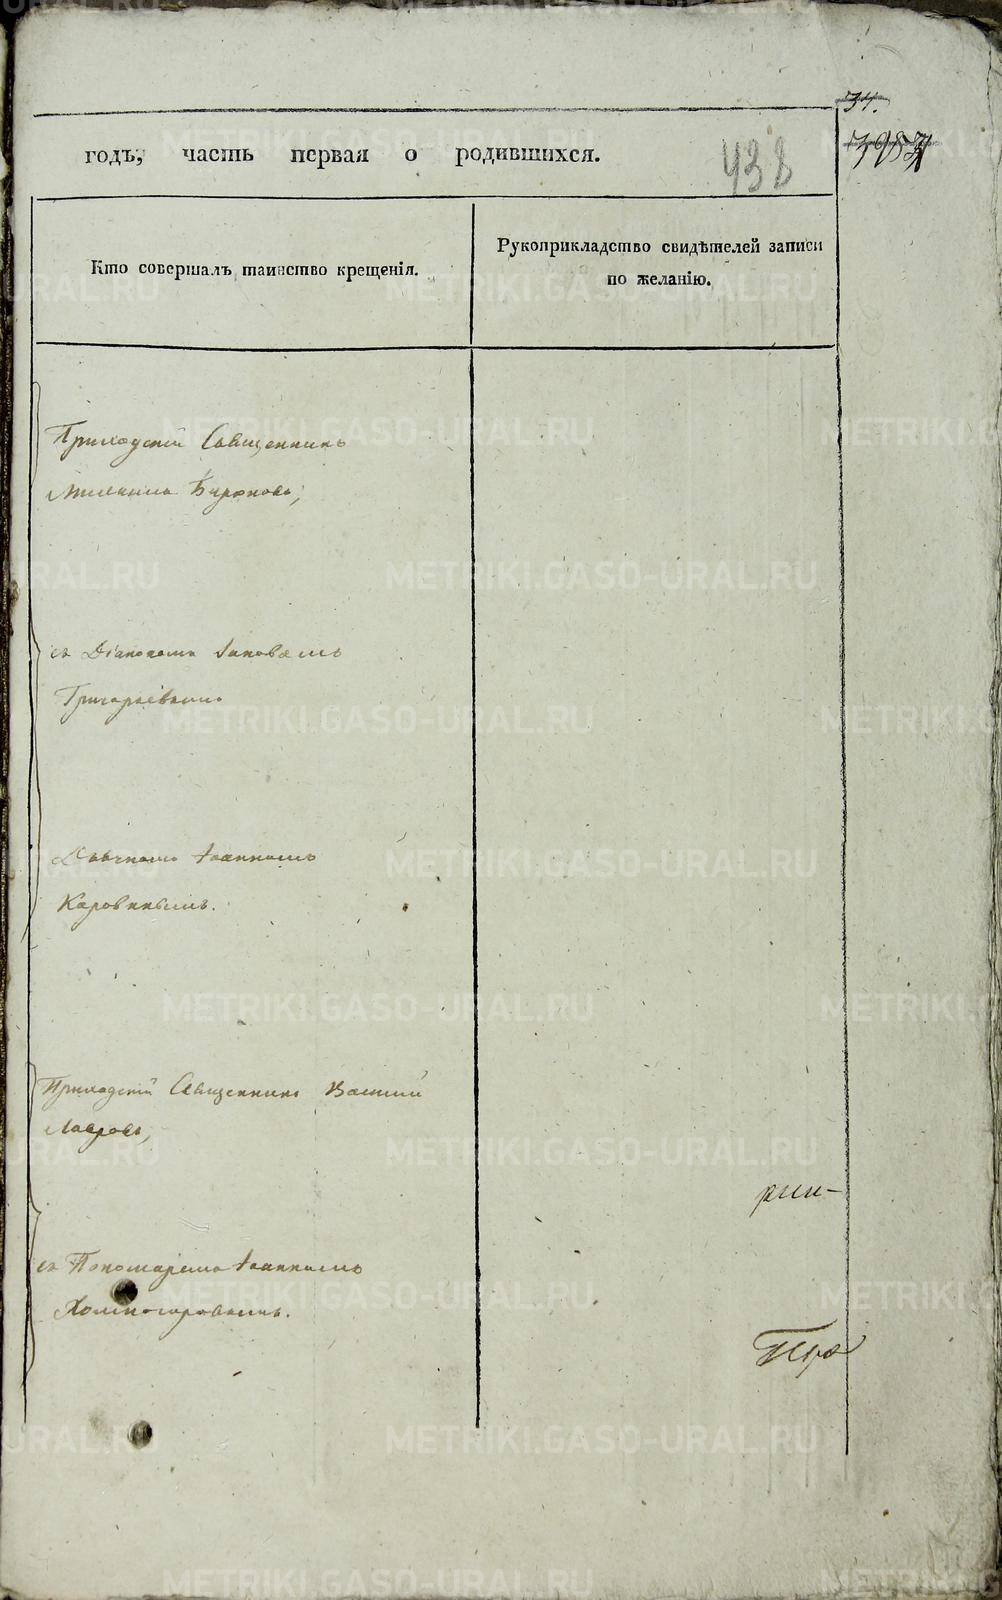 31.
годъ, часть первая о родившихся.
438
Кто совершалъ таинство крещенія.
Рукоприкладство свидѣтелей записи
по желанію.
Приходскій Священникъ
Михаилъ Бирюковъ,
съ Діакономъ Іаковомъ
Григорьевымъ
Дьячкомъ Іоанномъ
Коровинымъ.
Приходскій Священникъ Василій
Лавровъ,
рии-
съ Пономаремъ Іоанномъ
Холмогоровымъ.
METRIKI.GASO-URAL.RU